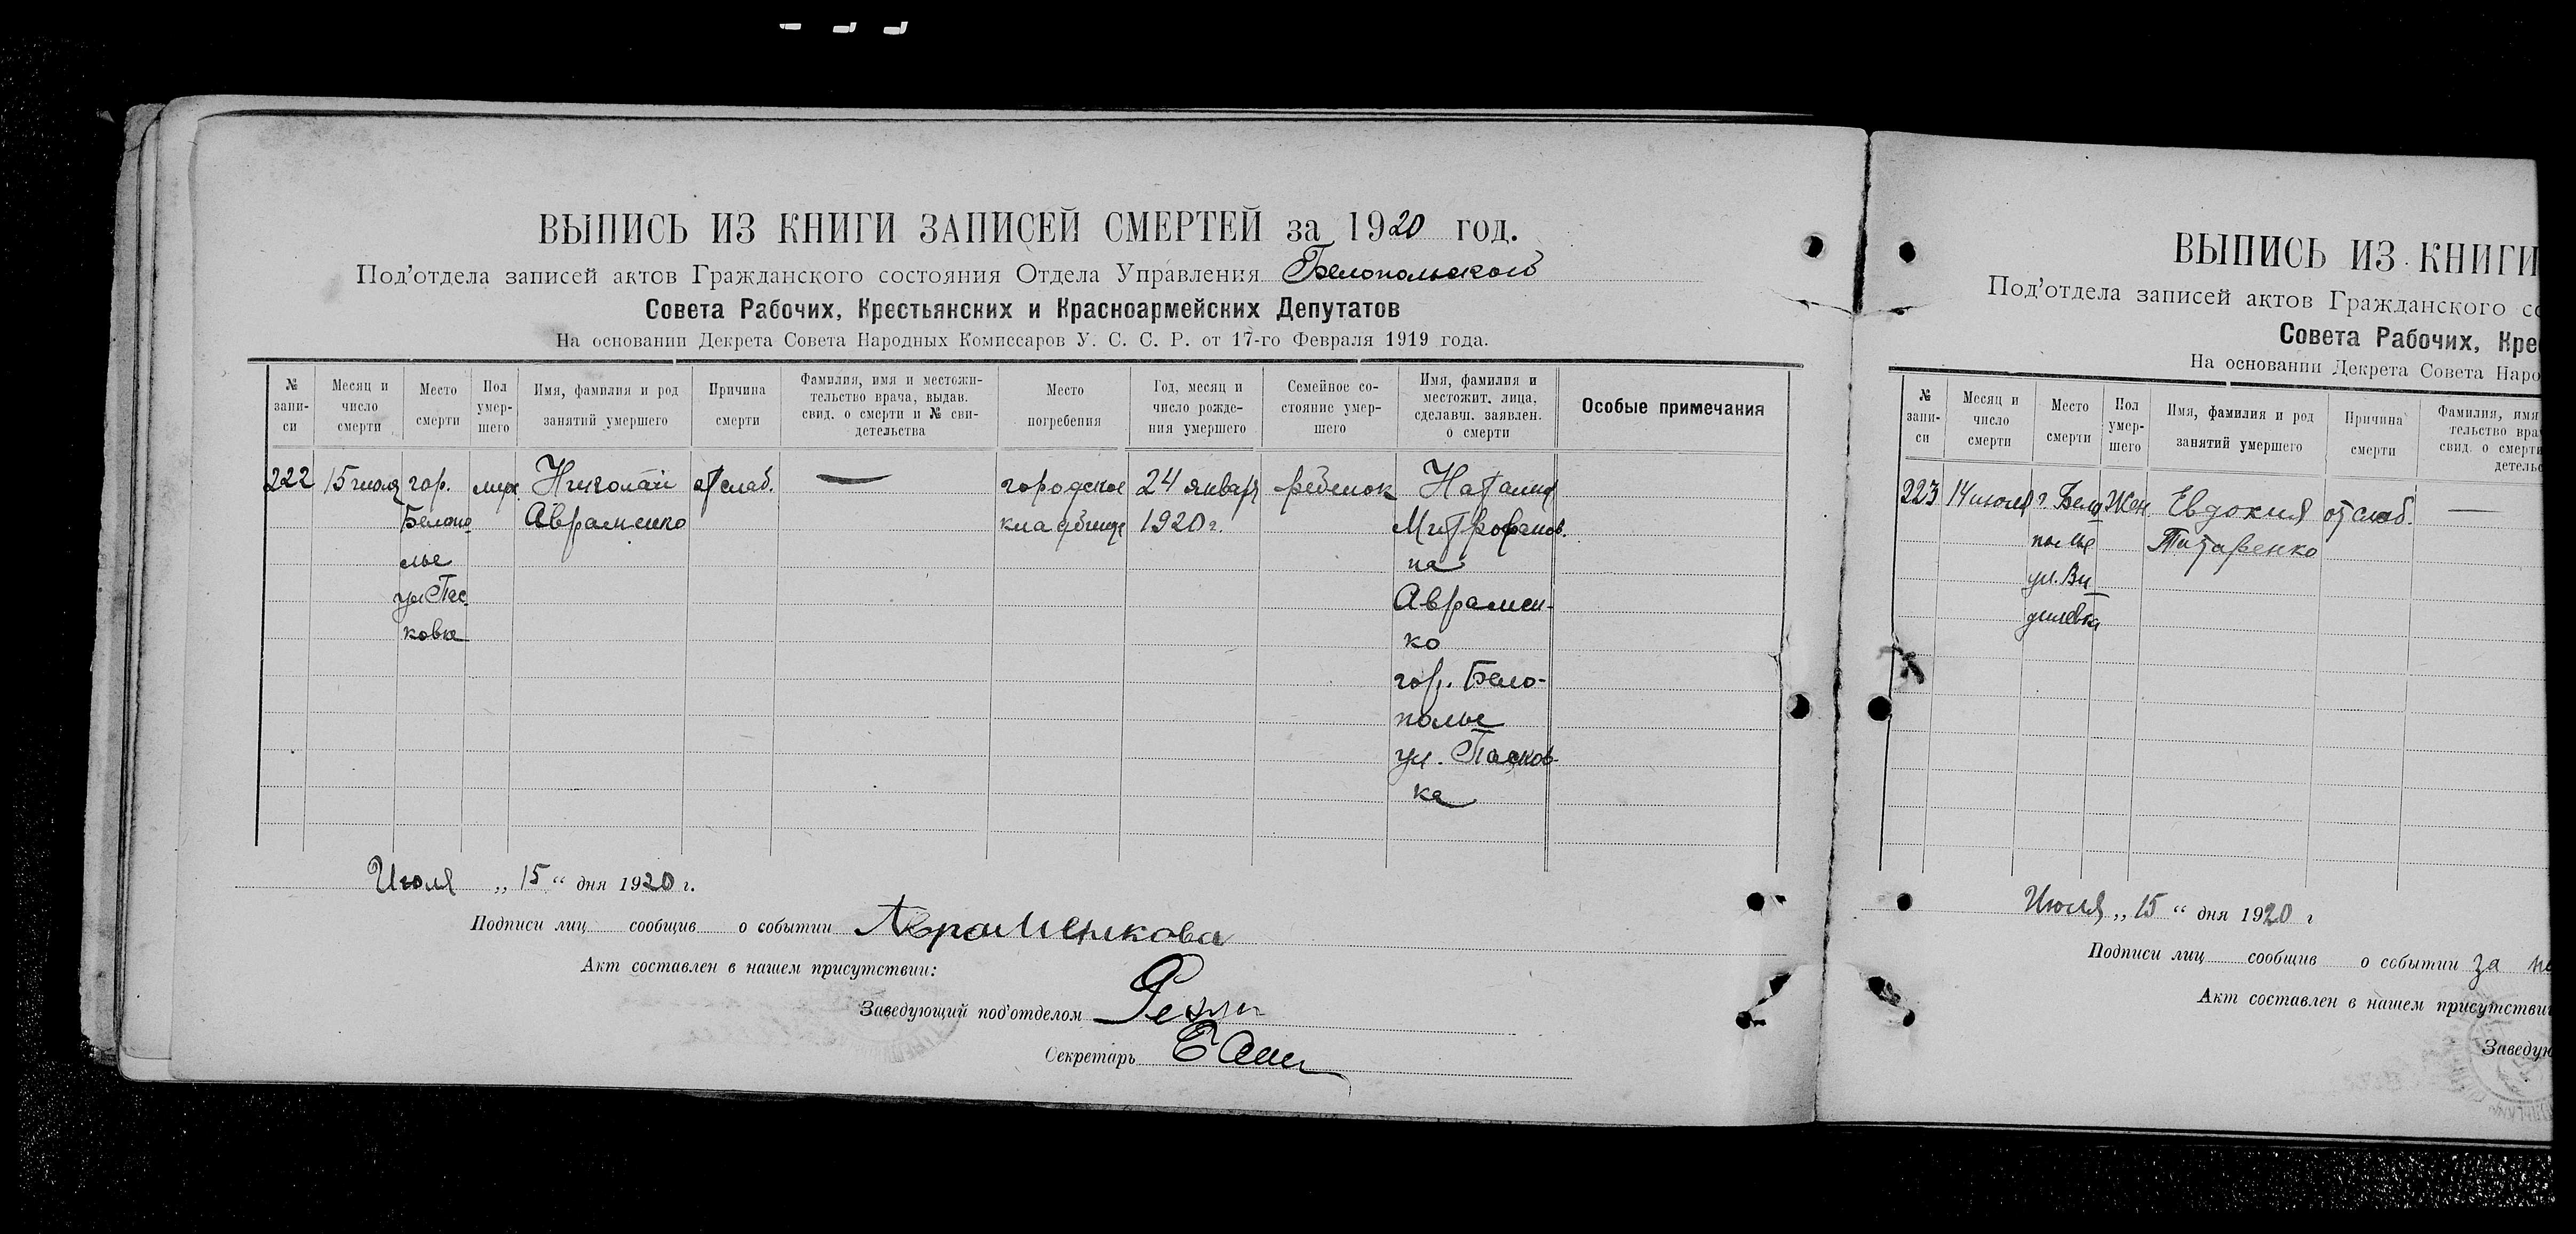 ВЫПИСЬ ИЗ КНИГИ ЗАПИСЕЙ СМЕРТЕЙ за 1920 год.
Под'отдела записей актов Гражданского состояния Отдела Управления Белопольского
Совета Рабочих, Крестьянских и Красноармейских Депутатов
На основании Декрета Совета Народных Комиссаров У. С. С. Р. от 17-го Февраля 1919 года.
№ запи-
си
Месяц и
число
смерти
Место
смерти
Пол
умер-
шего
Имя, фамилия и род
занятий умершего
Причина
смерти
Фамилия, имя и местожи-
тельство врача, выдав.
свид. о смерти и № сви-
детельства
Место
погребения
Год, месяц и
число рожде-
ния умершего
Семейное со-
стояние умер-
шего
Имя, фамилия и
местожит. лица,
сделавш. заявлен.
о смерти
Особые примечания
222
15 июля
гор.
Белопо
лье
ул Пес
ковка
муж.
Николай
Авраменко
от слаб.
—
городское
кладбище
24 января
1920 г.
ребенок
Наталия
Митрофанов.
на
Аврамен-
ко
гор. Бело-
полье
ул. Песков-
ка
Июля „ 15 “ дня 1920 г.
Подписи лиц сообщив о событии Авраменкова
Акт составлен в нашем присутствии:
Заведующий под'отделом
Секретарь
ВЫПИСЬ ИЗ КНИГИ
Под'отдела записей актов Гражданского со
Совета Рабочих, Кре
На основании Декрета Совета Наро
№
запи-
си
Месяц и
число
смерти
Место
смерти
Пол
умер-
шего
Имя, фамилия и род
занятий умершего
Причина
смерти
Фамилия, имя
тельство вра
свид. о смерти
детельс
223
14 июля
г. Бело
полье
ул. Ви
Жен
Евдокия
Титаренко
от слаб.
—
Июля „ 15 “ дня 1920 г
Подписи лиц сообщив о событии за не
Акт составлен в нашем присутствии
Заведую